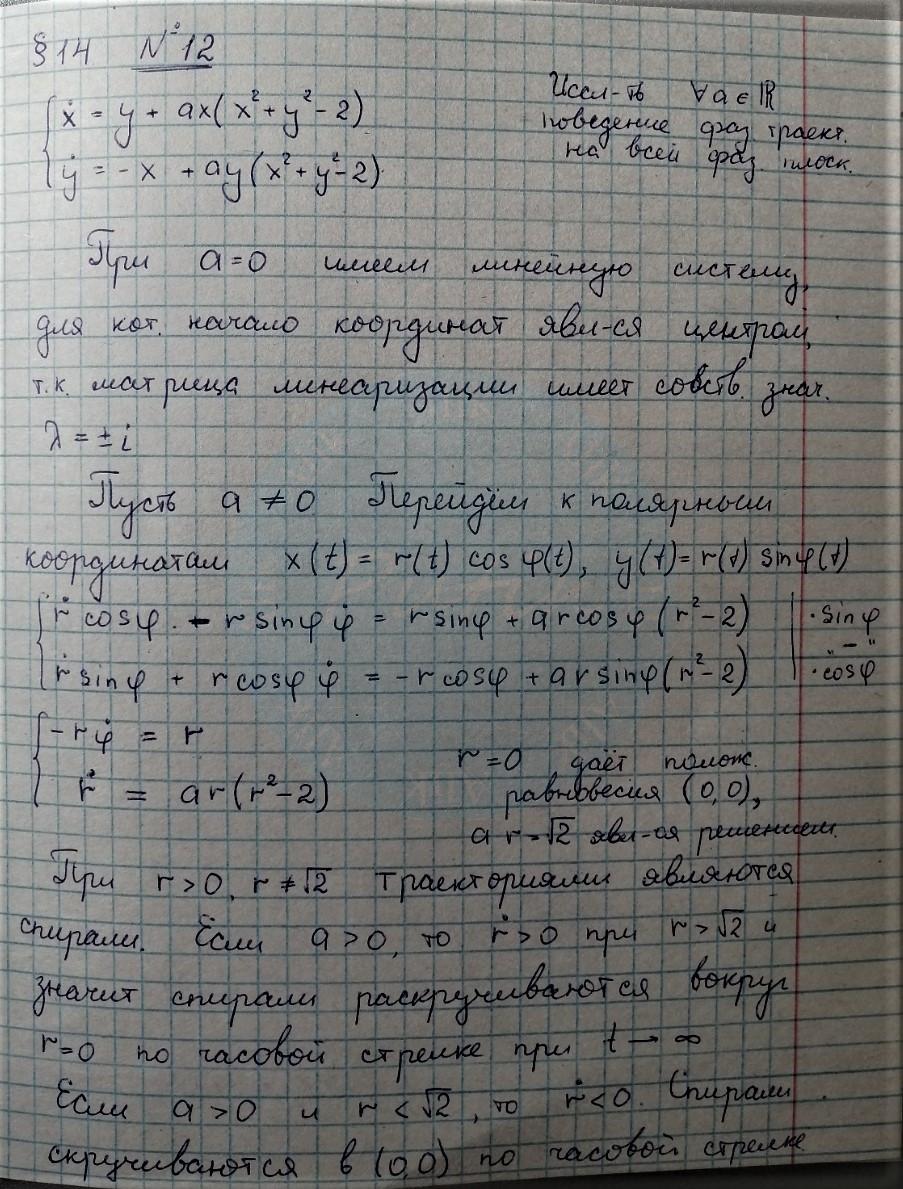 §14 №12
Иссл-ть ∀ a ∈ ℝ
поведение фаз. траект.
на всей фаз. плоск.
ẋ = y + ax(x² + y² - 2)
ẏ = -x + ay(x² + y² - 2)
При a = 0 имеем линейную систему,
для кот. начало координат явл-ся центром,
т.к. матрица линеаризации имеет собств. знач.
λ = ± i
Пусть a ≠ 0 Перейдём к полярным
координатам x(t) = r(t) cos φ(t), y(t) = r(t) sin φ(t)
ṙ cosφ - r sinφ φ̇ = r sinφ + a r cosφ (r² - 2) | · sinφ
„ — “
ṙ sinφ + r cosφ φ̇ = -r cosφ + a r sinφ (r² - 2) | · cosφ
-r φ̇ = r
ṙ = ar(r² - 2)
r = 0 даёт полож.
равновесия (0,0),
а r = √2 явл-ся решением.
При r > 0, r ≠ √2 траекториями являются
спирали. Если a > 0, то ṙ > 0 при r > √2 и
значит спирали раскручиваются вокруг
r = 0 по часовой стрелке при t → ∞
Если a > 0 и r < √2, то ṙ < 0. Спирали
скручиваются в (0,0) по часовой стрелке